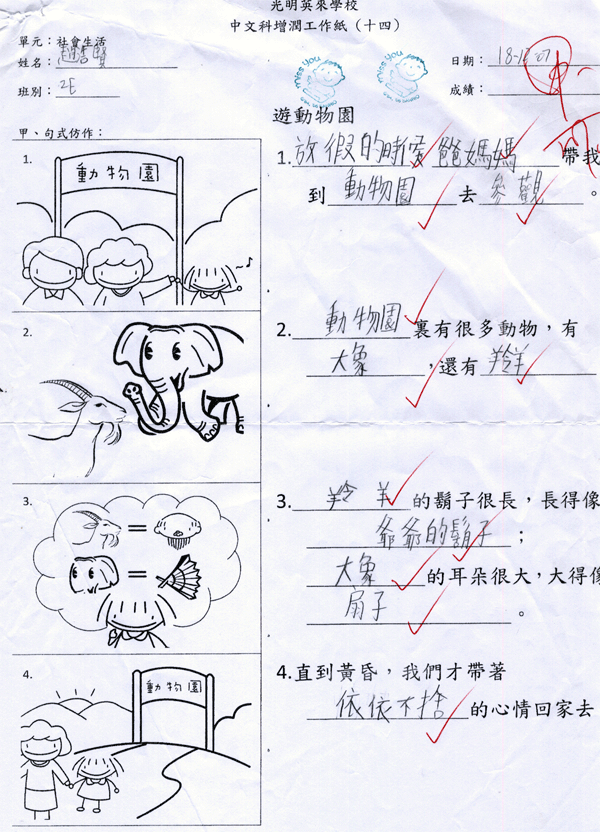 光明英來學校
中文科增潤工作紙（十四）
單元：社會生活
姓名：
日期：18-12-07
班別：2E
成績：
遊動物園
甲、句式仿作：
1.
動物園
1.放假的時候爸媽媽帶我
到動物園去參觀。
2.
2.動物園裏有很多動物，有
大象，還有羚羊
3.
3.羚羊的鬍子很長，長得像
爺爺的鬍子；
大象的耳朵很大，大得像
扇子。
4.
動物園
4.直到黃昏，我們才帶著
依依不捨的心情回家去
MISS YOU
MISS YOU